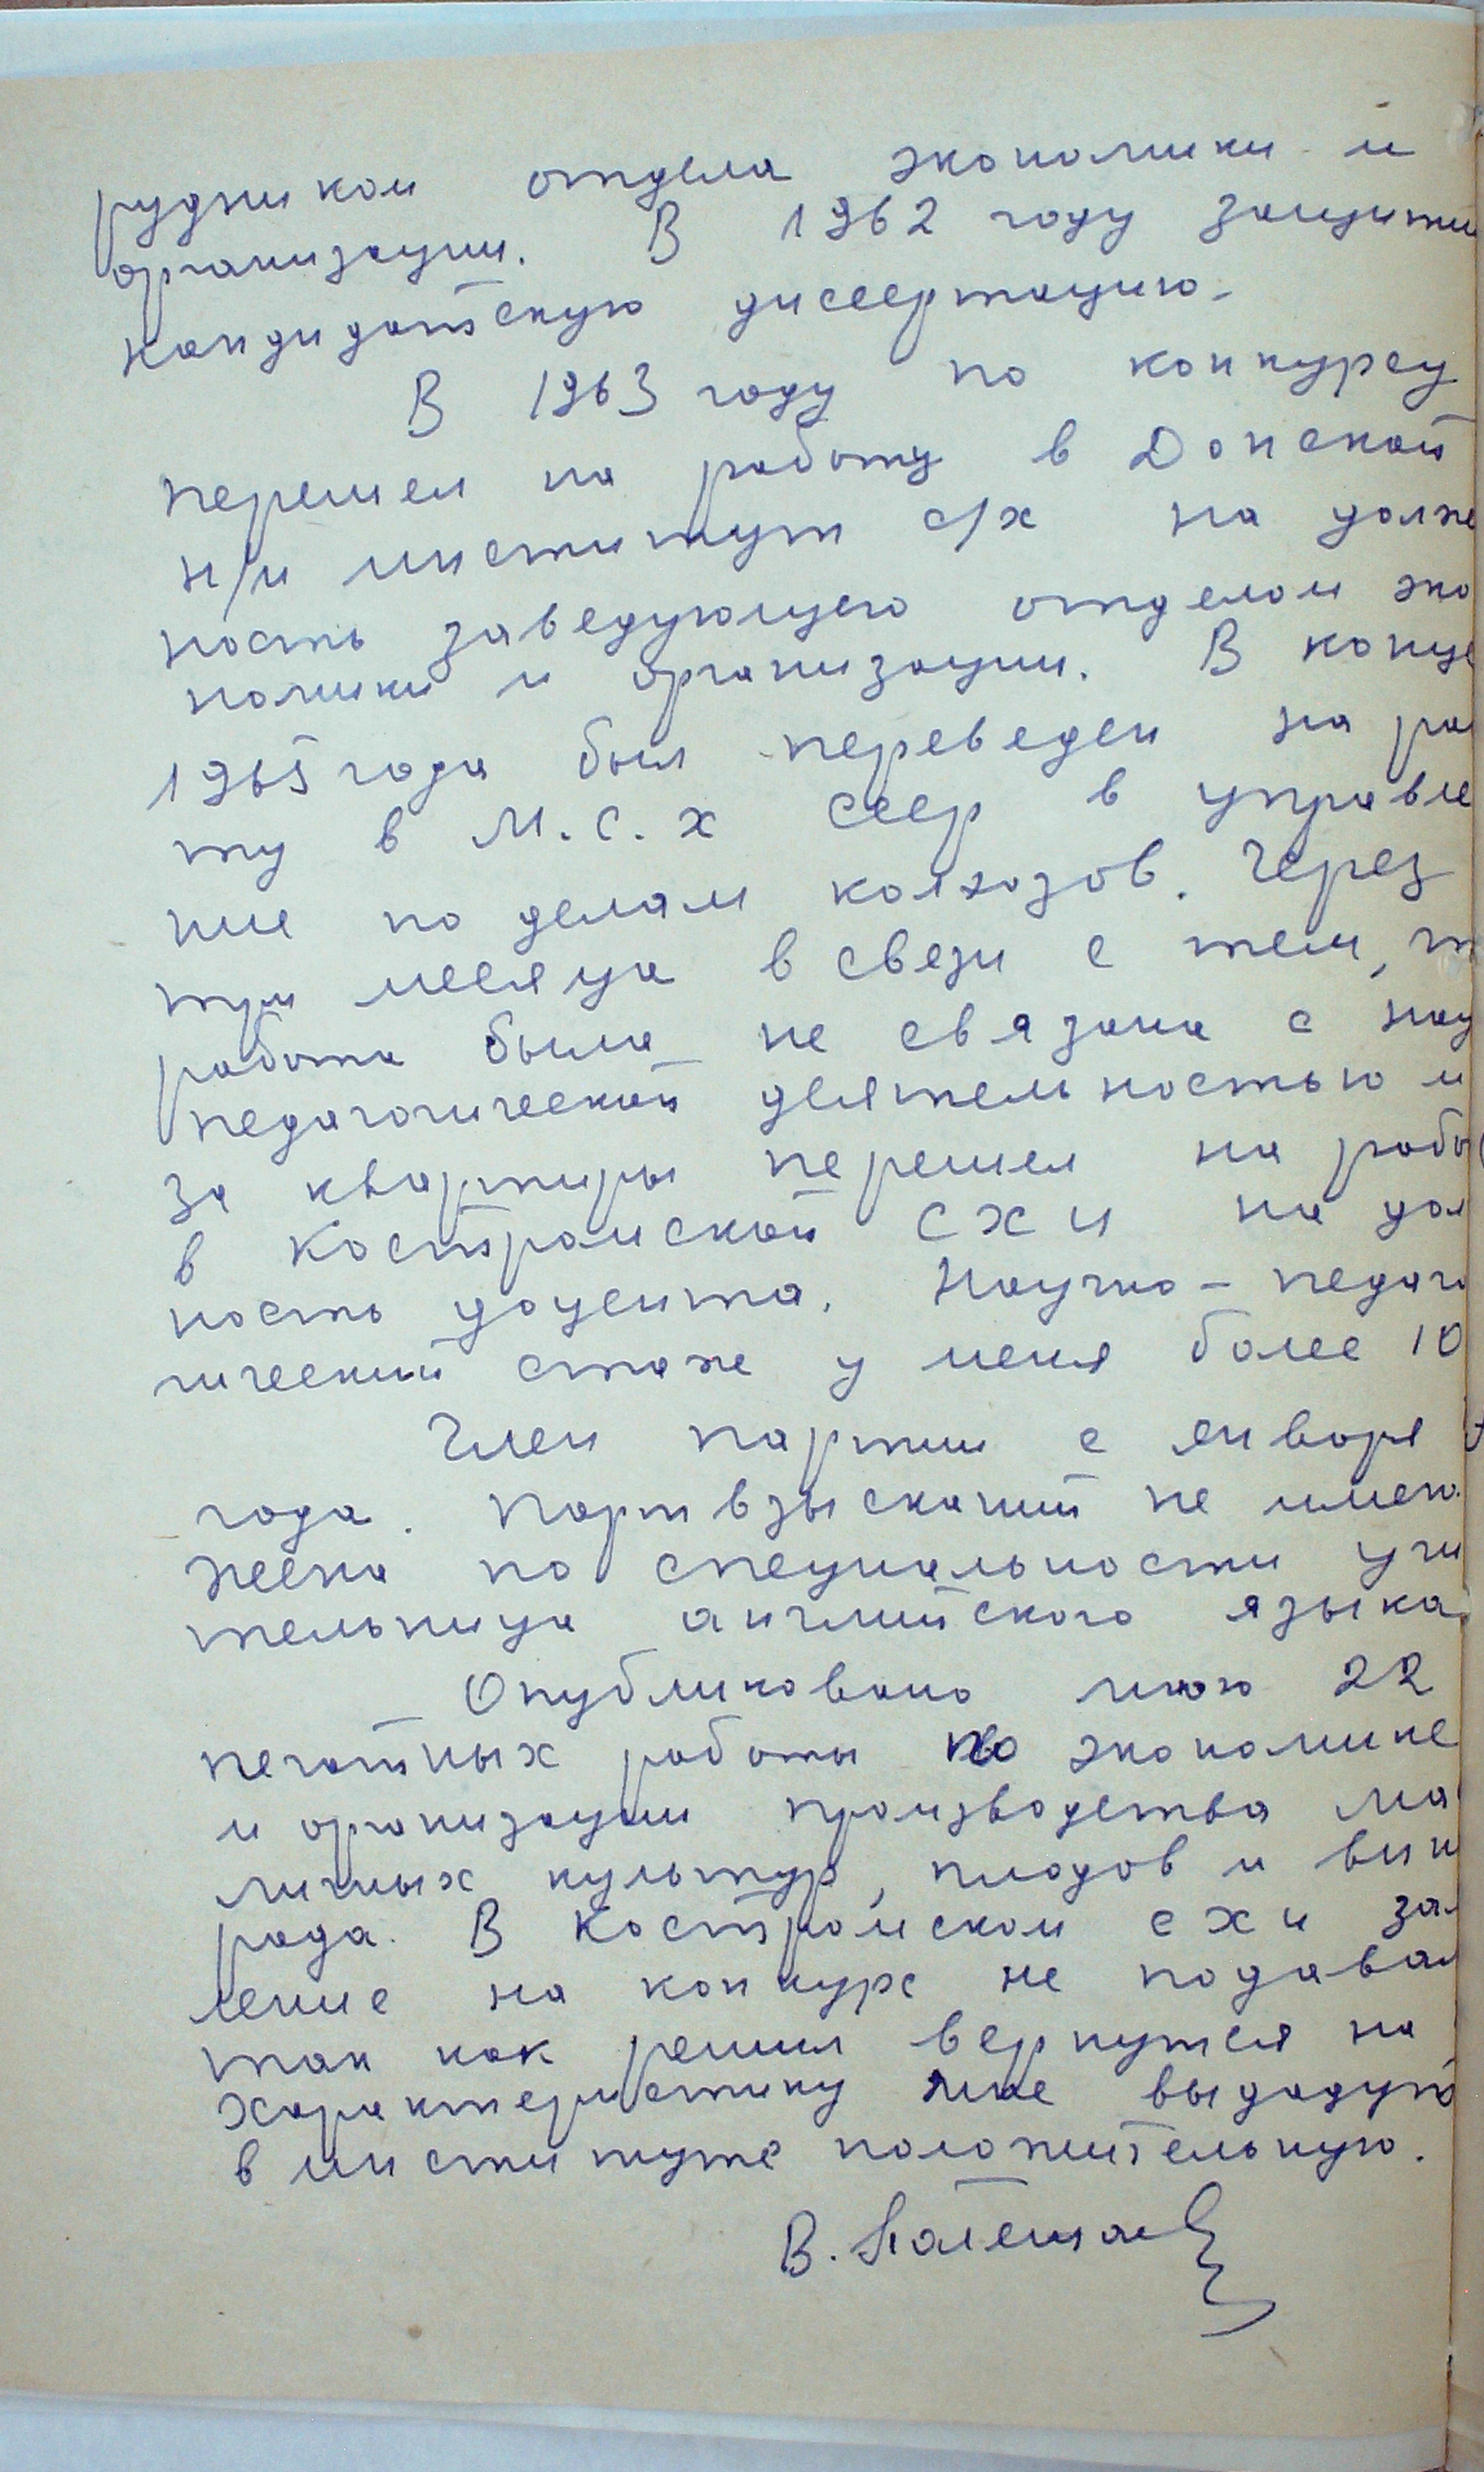 рудником отдела экономики и
организации. В 1962 году защити
кандидатскую диссертацию.
В 1963 году по конкурсу
перешел на работу в Донской
н/и институт с/х на долж
ность заведующего отделом эко
номики и организации. В конце
1965 года был переведен на ра
ту в М.С.Х СССР в управле
ние по делам колхозов. Через
три месяца в связи с тем,
работа была не связана с нау
педагогической деятельностью и
за квартиры перешел на рабо
в Костромской СХИ на дол
ность доцента. Научно-педаго
гический стаж у меня более 10
Член партии с января
года. Партвзысканий не имею.
жена по специальности учи
тельница английского языка
Опубликовано мною 22
печатных работы по экономике
и организации производства ма
личных культур, плодов и вин
рада. В Костромском СХИ зая
ление на конкурс не подавал
так как решил вернутся на
характеристику мне выдадут
в институте положительную.
В.